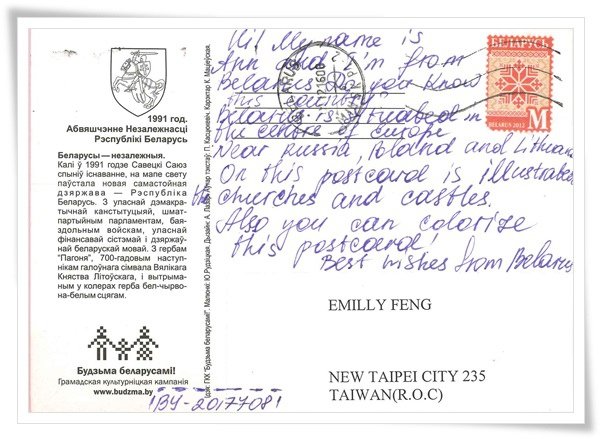 1991 год.
Абвяшчэнне Незалежнасці
Рэспублікі Беларусь
Беларусы — незалежныя.
Калі ў 1991 годзе Савецкі Саюз
спыніў існаванне, на мапе свету
паўстала новая самастойная
дзяржава — Рэспубліка
Беларусь. З уласнай дэмакра-
тычнай канстытуцыяй, шмат-
партыйным парламентам, бая-
здольным войскам, уласнай
фінансавай сістэмай і дзяржаў-
най беларускай мовай. З гербам
"Пагоня", 700-гадовым наступ-
нікам галоўнага сімвала Вялікага
Княства Літоўскага, і вытрыма-
ным у колерах герба бел-чырво-
на-белым сцягам.
Будзьма беларусамі!
Грамадская культурніцкая кампанія
www.budzma.by
BY-2017708
Ідэя: ГКК "Будзьма беларусамі!". Малюнкі: Ю.Рудзіцкая. Дызайн: А.
Hi! My name is
Ann and I'm from
Belarus Do you know
this country?
Belarus is situated in
the centre of Europe
Near Russia, Poland and Lithuania
On this postcard is illustrated
the churches and castles.
Also you can colorize
this postcard!
Best wishes from Belarus
БЕЛАРУСЬ
BELARUS 2012
M
EMILLY FENG
NEW TAIPEI CITY 235
TAIWAN(R.O.C)